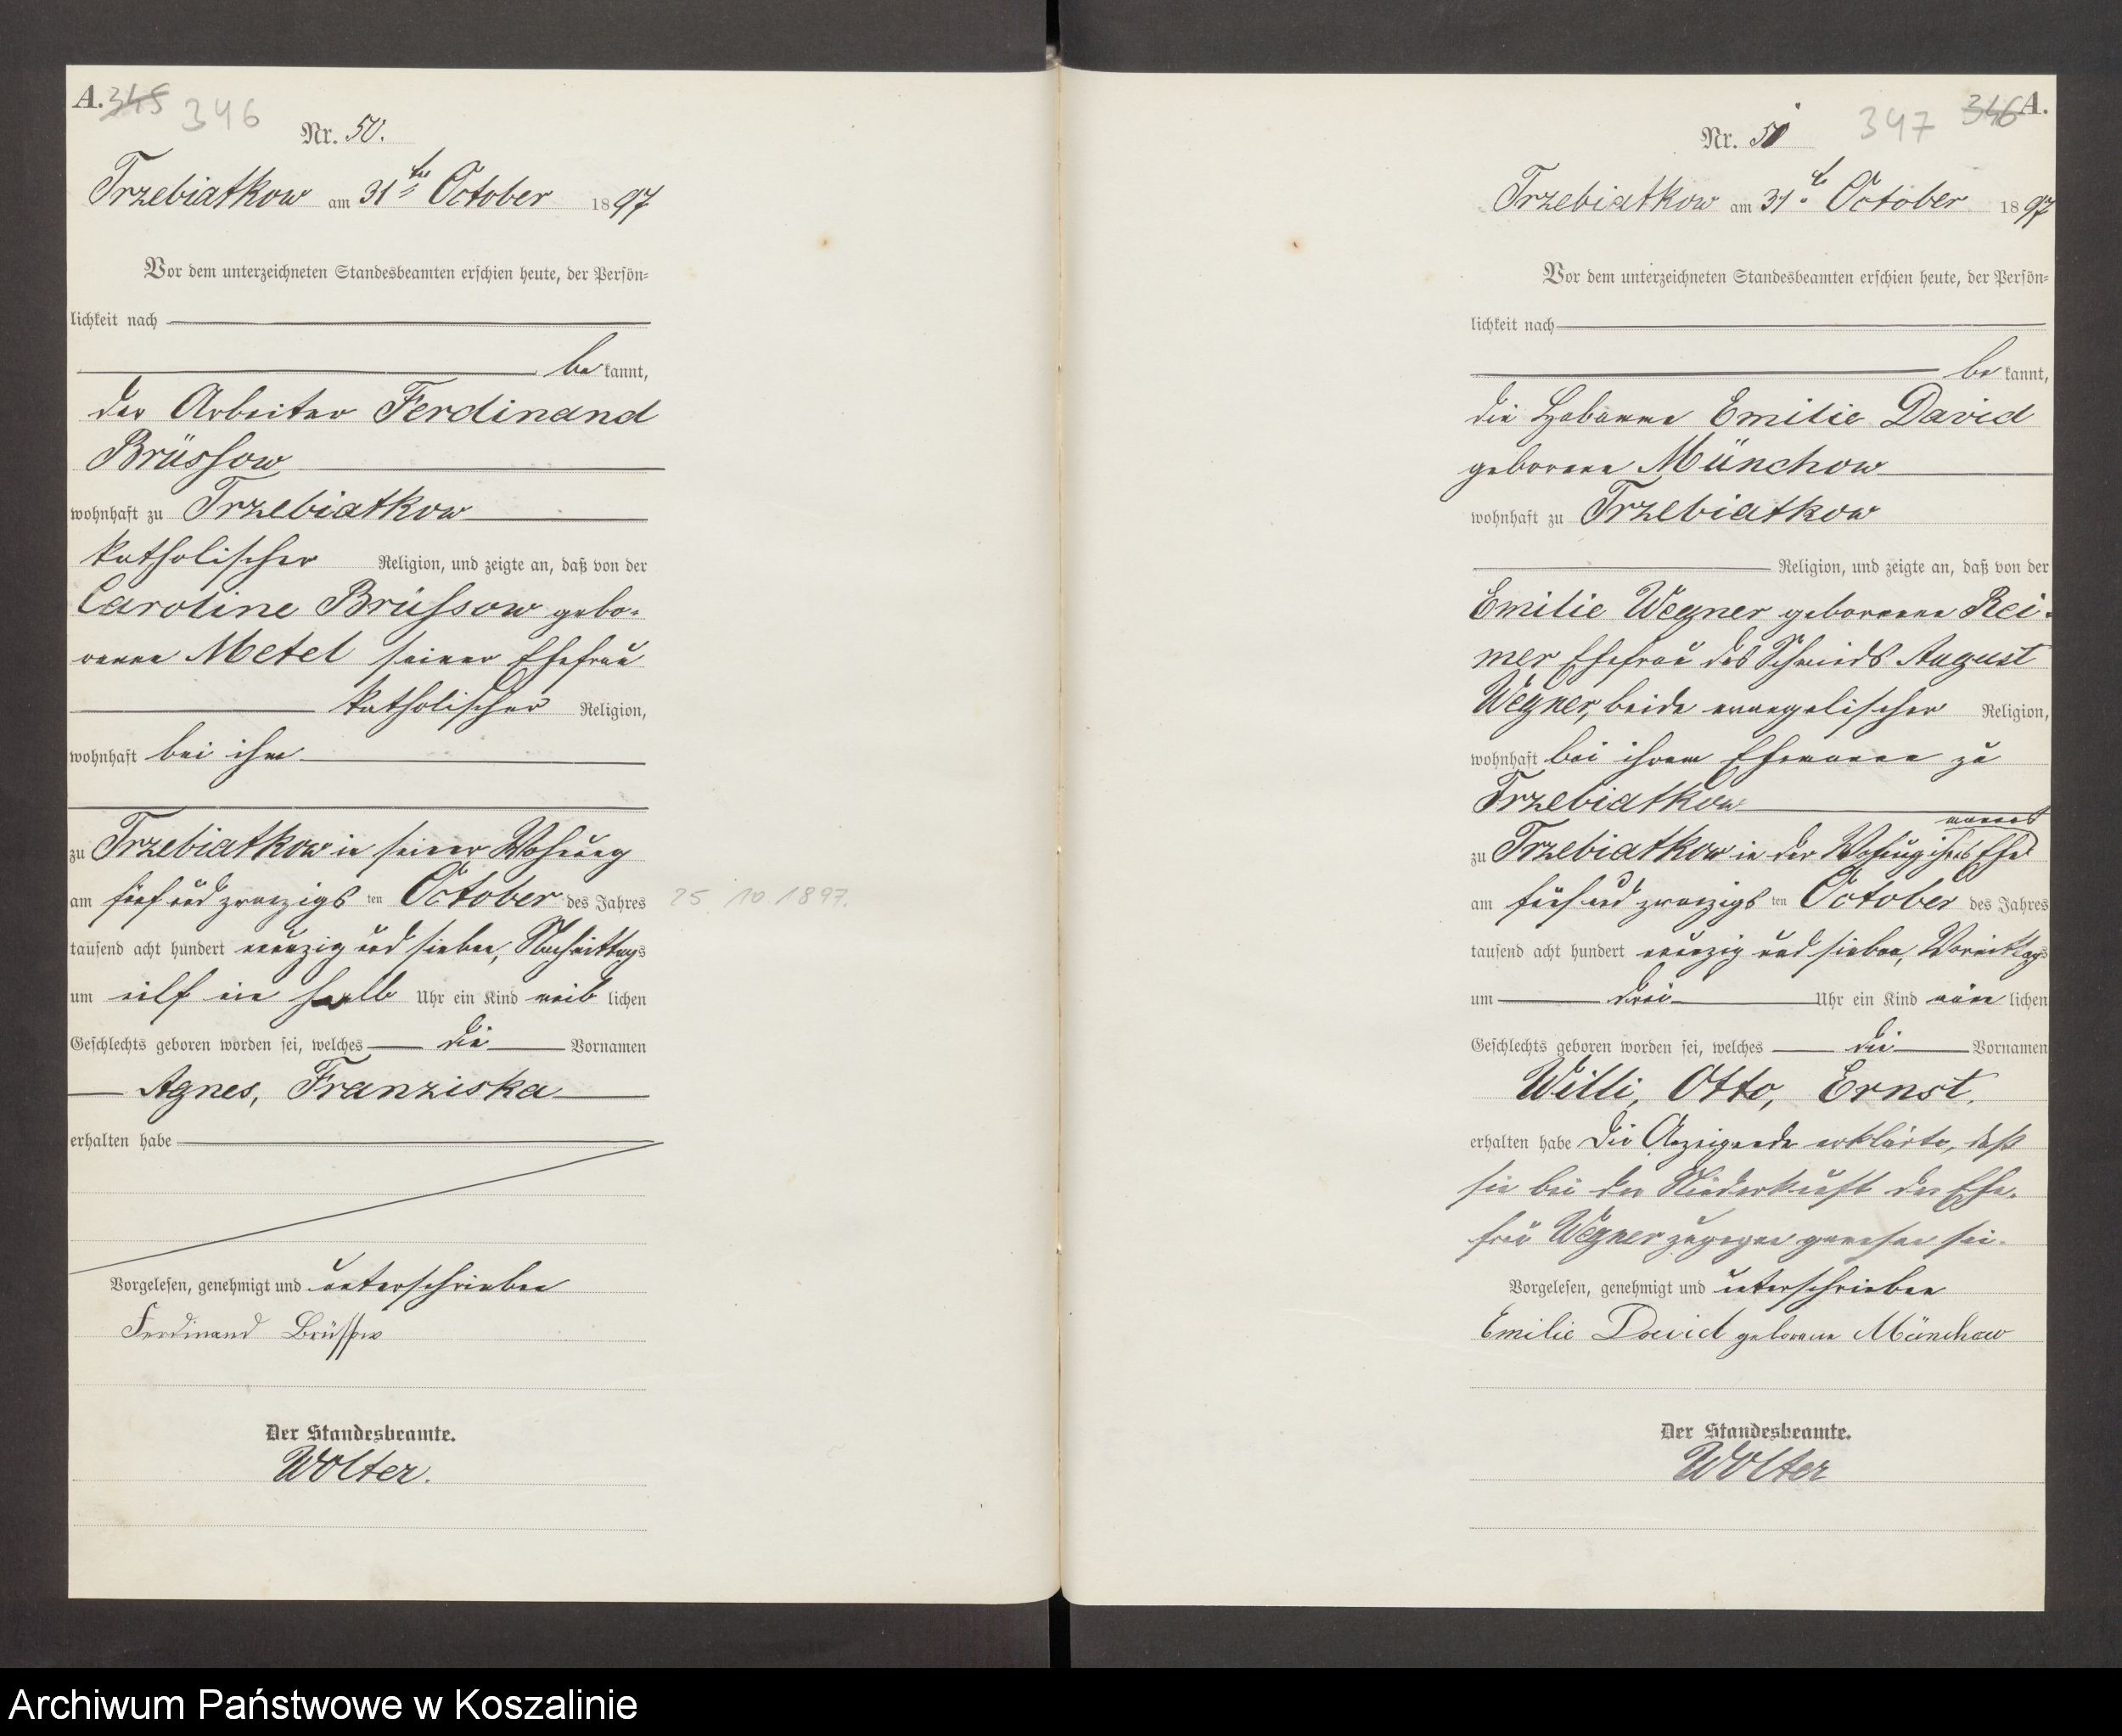 A. 345 346
Nr. 50.
Trzebiatkow am 31ten October 1897
Vor dem unterzeichneten Standesbeamten erschien heute, der Persön-
lichkeit nach
bekannt,
der Arbeiter Ferdinand
Brüssow
wohnhaft zu Trzebiatkow
katholischer Religion, und zeigte an, daß von der
Caroline Brüssow gebo-
renen Metel seiner Ehefrau
katholischer Religion,
wohnhaft bei ihm
zu Trzebiatkow in seiner Wohnung
am fünf und zwanzigsten October des Jahres 25 10 1897.
tausend acht hundert neunzig und sieben, Nachmittags
um eilf ein halb Uhr ein Kind weiblichen
Geschlechts geboren worden sei, welches die Vornamen
Agnes, Franziska
erhalten habe
Vorgelesen, genehmigt und unterschrieben
Ferdinand Brüssow
Der Standesbeamte.
Wolter.
347 346 A.
Nr. 51
Trzebiatkow am 31ten October 1897
Vor dem unterzeichneten Standesbeamten erschien heute, der Persön-
lichkeit nach
bekannt,
die Hebamme Emilie David
geborene Münchow
wohnhaft zu Trzebiatkow
Religion, und zeigte an, daß von der
Emilie Wegner geborenen Rei-
mer Ehefrau des Schmieds August
Wegner, beide evangelischer Religion,
wohnhaft bei ihrem Ehemanne zu
Trzebiatkow
zu Trzebiatkow in der Wohnung ihres Ehe
mannes
am fünf und zwanzigsten October des Jahres
tausend acht hundert neunzig und sieben, Vormittags
um drei Uhr ein Kind männlichen
Geschlechts geboren worden sei, welches die Vornamen
Willi, Otto, Ernst.
erhalten habe Die Anzeigende erklärte, daß
sie bei der Niederkunft der Ehe-
frau Wegner zugegen gewesen sei.
Vorgelesen, genehmigt und unterschrieben
Emilie David geborene Münchow
Der Standesbeamte.
Wolter
Archiwum Państwowe w Koszalinie